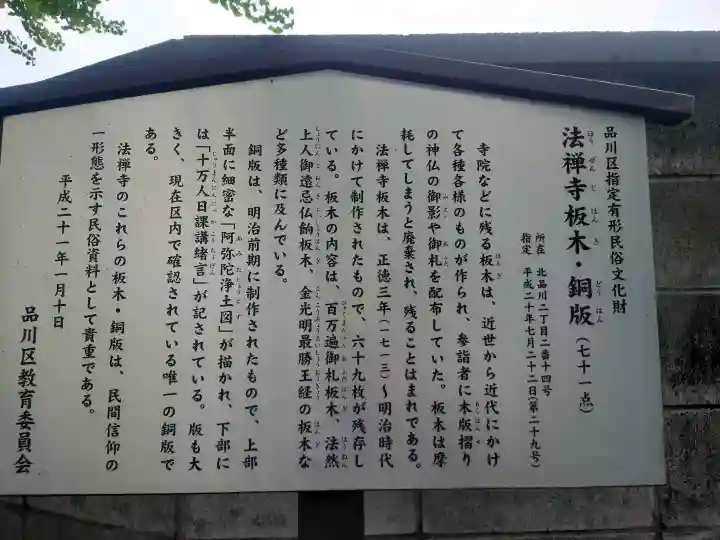 品川区指定有形民俗文化財
法禅寺板木・銅版(七十一点)
所在 北品川二丁目二番十四号
指定 平成二十年七月二十二日(第二十九号)
寺院などに残る板木は、近世から近代にかけ
て各種各様のものが作られ、参詣者に木版摺り
の神仏の御影や御札を配布していた。板木は摩
耗してしまうと廃棄され、残ることはまれである。
法禅寺板木は、正徳三年(一七一三)〜明治時代
にかけて制作されたもので、六十九枚が残存し
ている。板木の内容は、百万遍御札板木、法然
上人御遠忌仏餉板木、金光明最勝王経の板木な
ど多種類に及んでいる。
銅版は、明治前期に制作されたもので、上部
半面に細密な「阿弥陀浄土図」が描かれ、下部に
は「十万人日課講緒言」が記されている。版も大
きく、現在区内で確認されている唯一の銅版で
ある。
法禅寺のこれらの板木・銅版は、民間信仰の
一形態を示す民俗資料として貴重である。
平成二十一年一月十日
品川区教育委員会